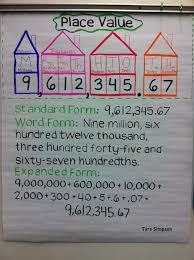 Place Value
M H T O
9,612,345.67
Standard Form: 9,612,345.67
Word Form: Nine million, six
hundred twelve thousand,
three hundred forty-five and
sixty-seven hundredths.
Expanded Form:
9,000,000+600,000+10,000+
2,000+300+40+5+.6+.07=
9,612,345.67
Tara Simpson